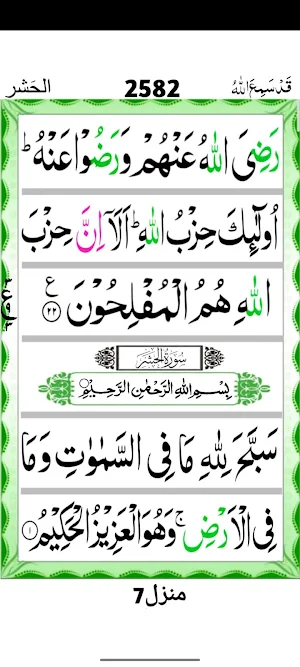 الحَشر 2582 قَدْ سَمِعَ اللهُ
رَضِىَ اللّٰهُ عَنْهُمْ وَرَضُوْا عَنْهُ ؕ
اُولٰٓئِكَ حِزْبُ اللّٰهِ ؕ اَلَاۤ اِنَّ حِزْبَ
اللّٰهِ هُمُ الْمُفْلِحُوْنَ ﴿۲۲﴾ ع
سُوْرَةُ الْحَشْرِ
بِسْمِ اللّٰهِ الرَّحْمٰنِ الرَّحِيْمِ
سَبَّحَ لِلّٰهِ مَا فِى السَّمٰوٰتِ وَمَا
فِى الْاَرْضِ ۚ وَهُوَ الْعَزِيْزُ الْحَكِيْمُ ﴿۱﴾
منزل7